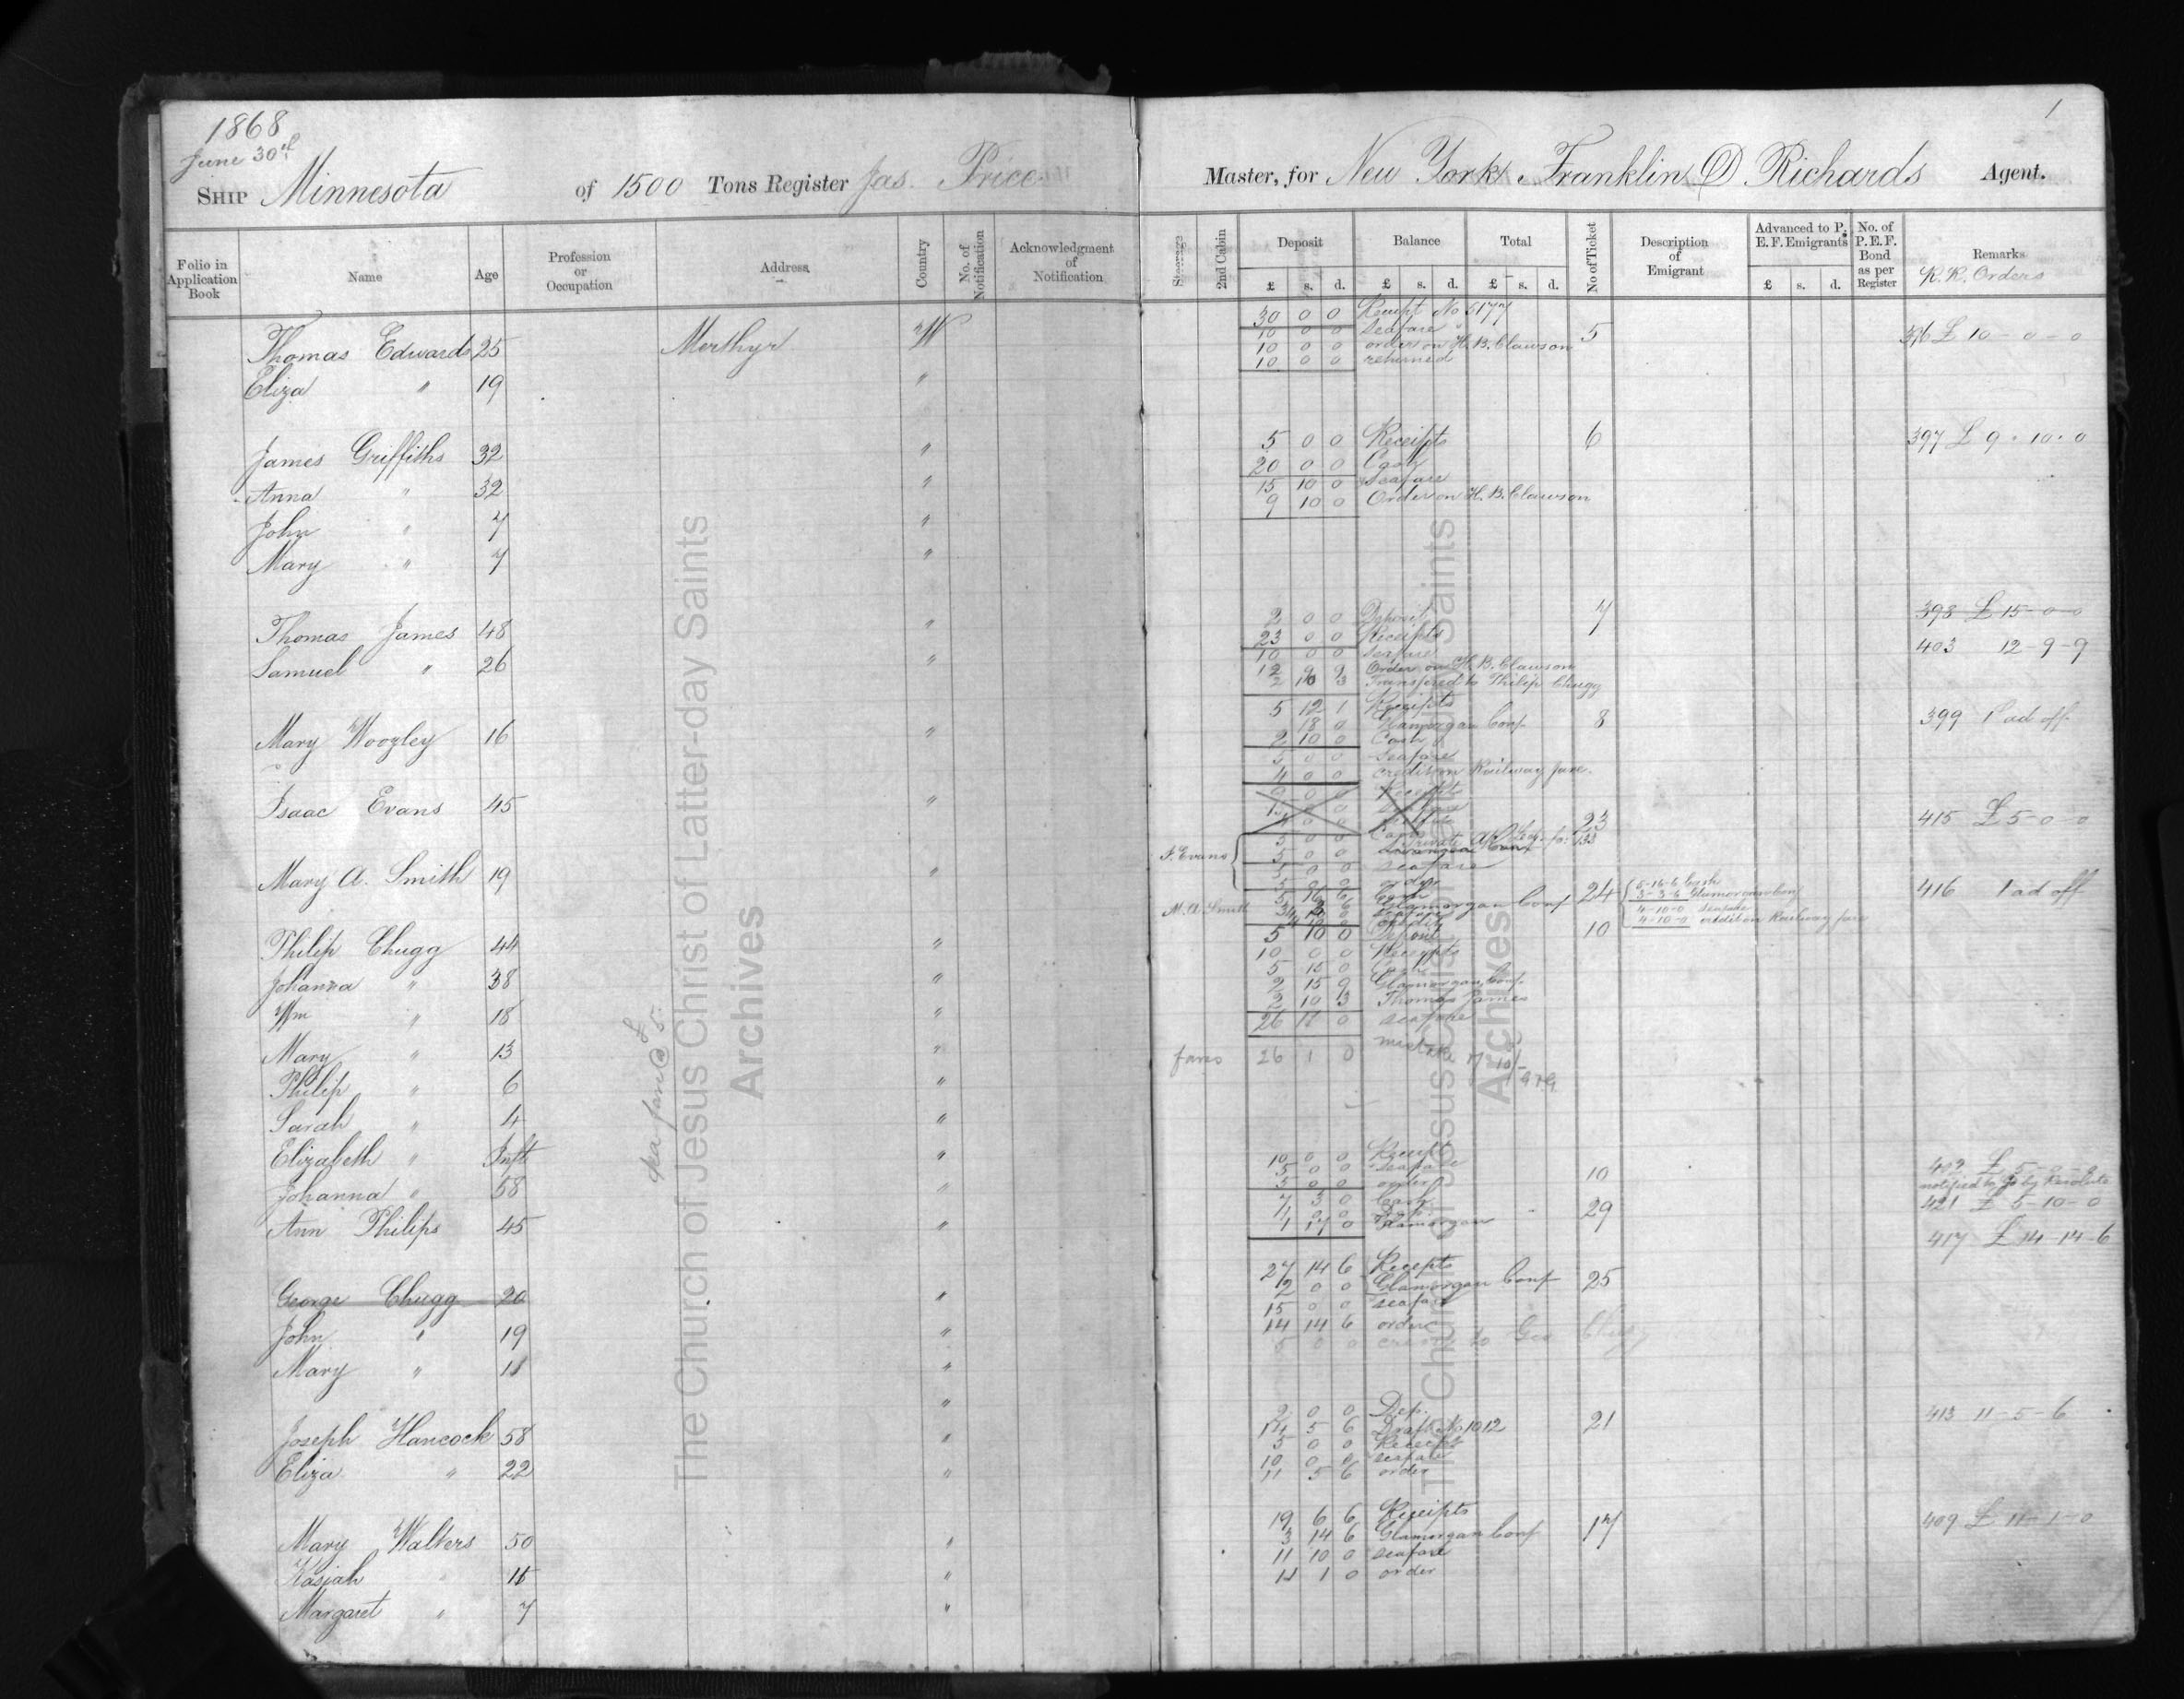 1868
June 30th
1
SHIP Minnesota of 1500 Tons Register Jas. Price Master, for New York, Franklin D Richards Agent.
Folio in Application Book Name Age Profession or Occupation Address Country No. of Notification Acknowledgment of Notification Steerage 2nd Cabin Deposit Balance Total No of Ticket Description of Emigrant Advanced to P. E. F. Emigrants No. of P. E. F. Bond as per Register Remarks
R.R. Orders
£ s. d. £ s. d. £ s. d. £ s. d.
30 0 0 Receipt No 5177
Thomas Edwards 25 Merthyr W 10 0 0 Seafare 5 396 £ 10 - 0 - 0
10 0 0 order on H. B. Clawson
10 0 0 returned
Eliza " 19 "
James Griffiths 32 " 5 0 0 Receipts 6 397 £ 9 . 10 . 0
20 0 0 Cash
Anna " 32 " 15 10 0 Seafare
9 10 0 Order on H. B. Clawson
John " 7 "
Mary " 7 "
Thomas James 48 " 2 0 0 Deposit 7 398 £ 15 - 0 - 0
23 0 0 Receipts 403 12 - 9 - 9
Samuel " 26 " 10 0 0 Seafare
12 9 9 Order on H. B. Clawson
2 10 3 Transfered to Philip Chugg
5 12 1 Receipts
Mary Woozley 16 " 18 0 Glamorgan Conf 8 399 1 ad off
2 10 0 Cash
5 0 0 Seafare
4 0 0 credit on Railway fare.
Isaac Evans 45 " 23 415 £ 5 - 0 - 0
I. Evans 5 0 0 seafare
5 0 0 order
Mary A. Smith 19 " M. A. Smith Glamorgan Conf 24 5-16-6 Cash 416 1 ad off
3-3-6 Glamorgan Conf
4-10-0 seafare
4-10-0 credit on Railway fare
Philip Chugg 44 " 5 10 0 Deposit 10
10 0 0 Receipts
Johanna " 38 " 5 15 0 Cash
2 15 9 Glamorgan Conf.
Wm " 18 " 2 10 3 Thomas James
26 11 0 seafare
Mary " 13 " fares 26 1 0 mistake of 10/-
Philip " 6 "
Sarah " 4 "
Elizabeth " Inft " 10 0 0 Receipt
5 0 0 seafare 10 402 £ 5 - 0 - 0
Johanna " 58 " 5 0 0 order notified to go by Resolute
Ann Philips 45 " 7 3 0 Cash 29 421 £ 5 - 10 - 0
1 17 0 Glamorgan
417 £ 14 - 14 - 6
George Chugg 20 " 27 14 6 Receipts
2 0 0 Glamorgan Conf 25
15 0 0 seafare
John " 19 " 14 14 6 order
5 0 0 credit to Geo Chugg
Mary " 11 "
"
Joseph Hancock 58 " 2 0 0 Dep. 21 413 11 - 5 - 6
14 5 6 Draft No 1012
5 0 0 Receipt
Eliza " 22 " 10 0 0 seafare
11 5 6 order
Mary Walters 50 " 19 6 6 Receipts 17 409 £ 11 - 1 - 0
3 14 6 Glamorgan Conf
11 10 0 seafare
Kasiah " "
11 1 0 order
Margaret " 7 "
sea fare @ £5.
The Church of Jesus Christ of Latter-day Saints
Archives
The Church of Jesus Christ of Latter-day Saints
Archives